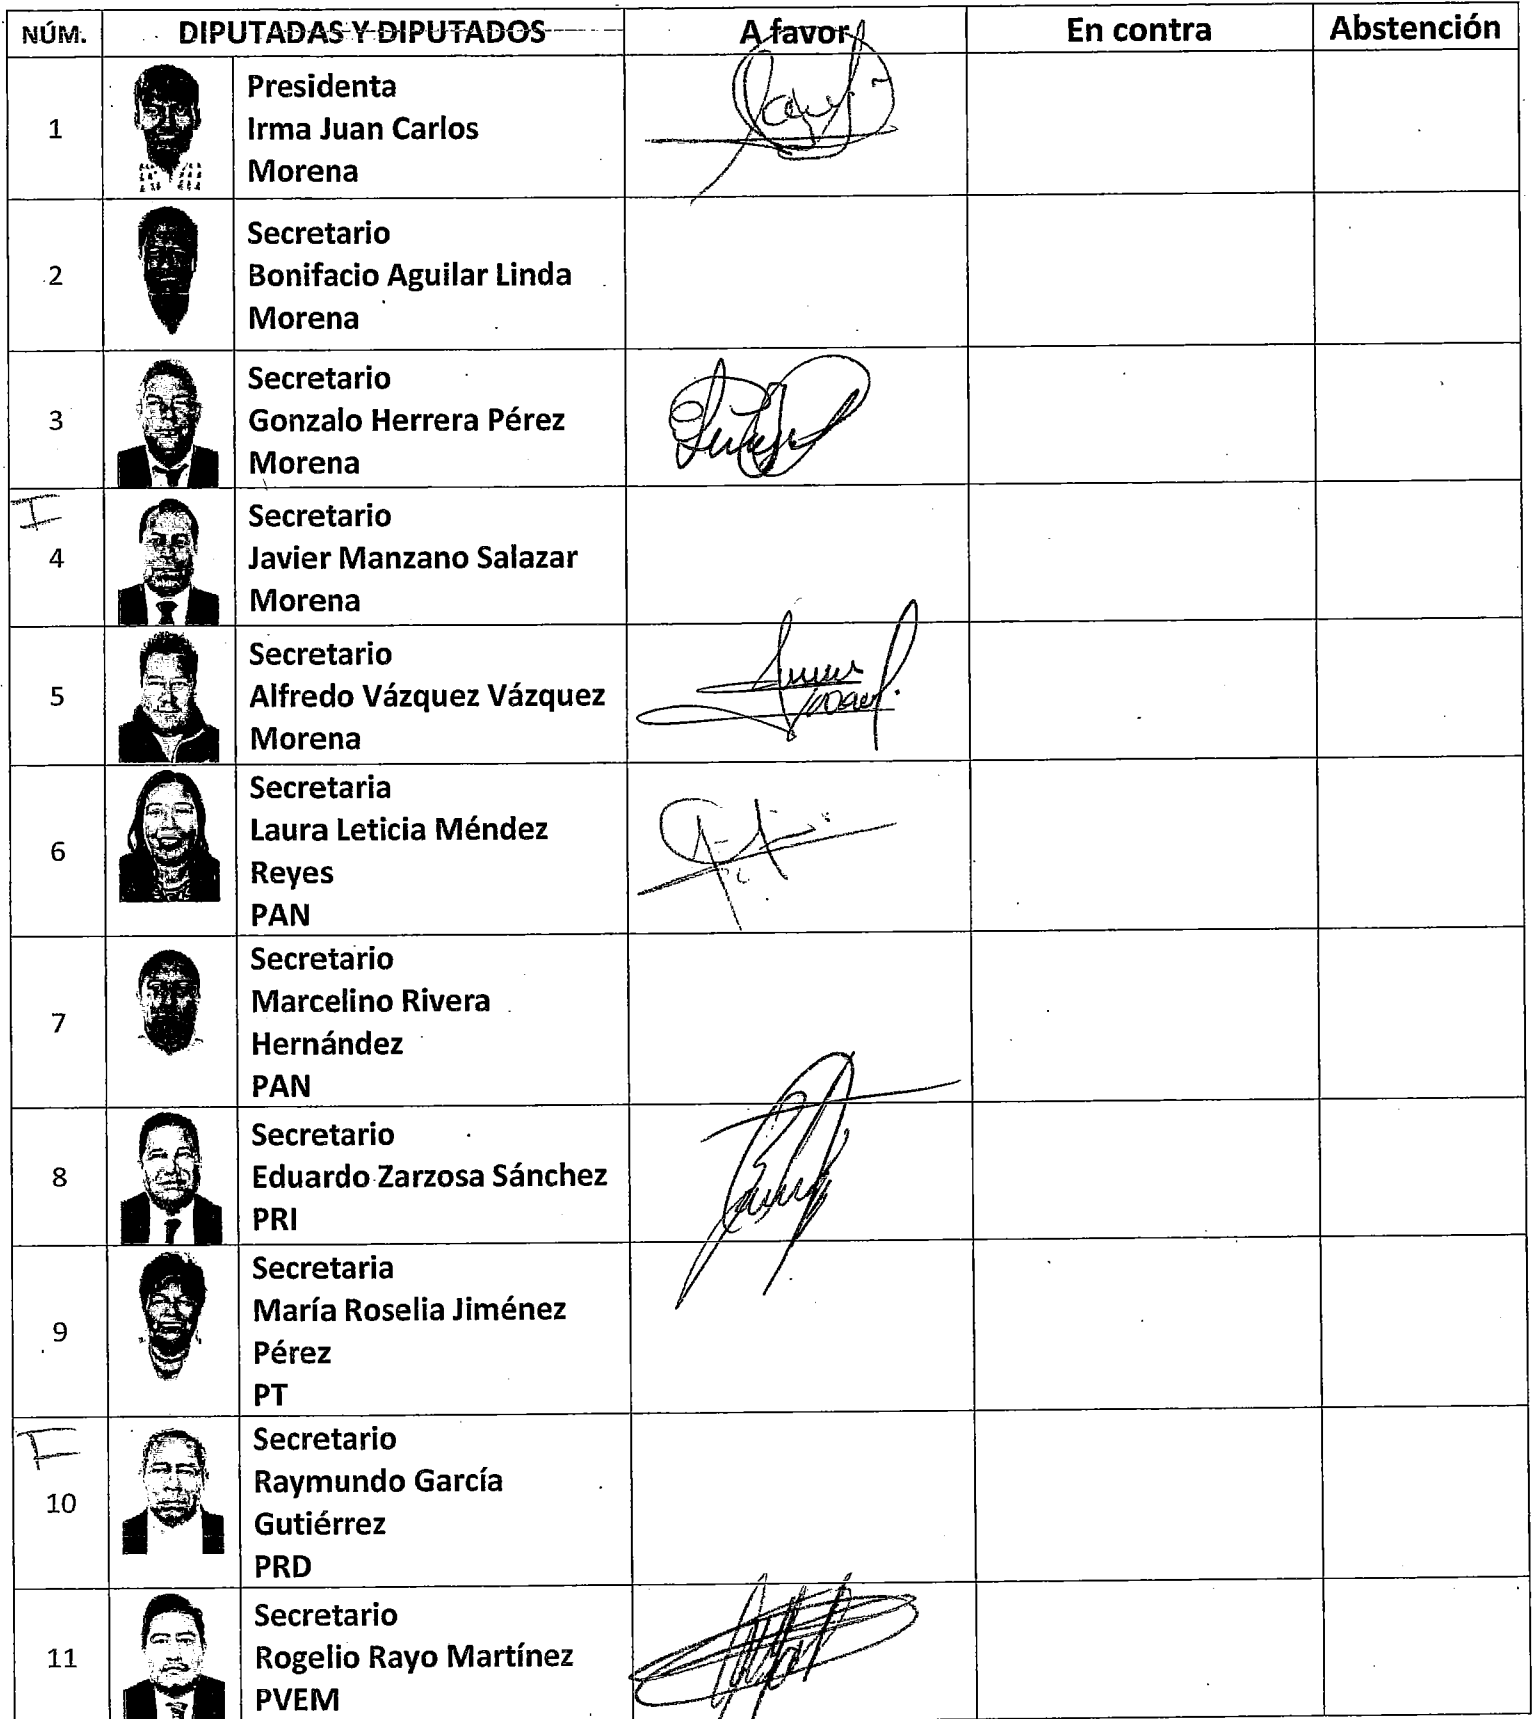 NÚM. DIPUTADAS Y DIPUTADOS A favor En contra Abstención
1
Presidenta
Irma Juan Carlos
Morena
2
Secretario
Bonifacio Aguilar Linda
Morena
3
Secretario
Gonzalo Herrera Pérez
Morena
I
4
Secretario
Javier Manzano Salazar
Morena
5
Secretario
Alfredo Vázquez Vázquez
Morena
6
Secretaria
Laura Leticia Méndez
Reyes
PAN
7
Secretario
Marcelino Rivera
Hernández
PAN
8
Secretario
Eduardo Zarzosa Sánchez
PRI
9
Secretaria
María Roselia Jiménez
Pérez
PT
10
Secretario
Raymundo García
Gutiérrez
PRD
11
Secretario
Rogelio Rayo Martínez
PVEM